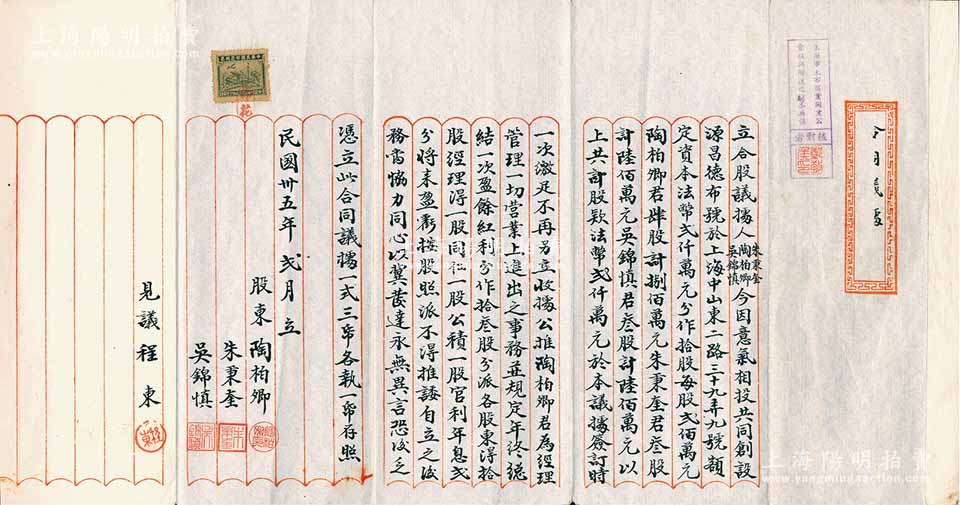 合同議據
立合股議據人朱秉奎陶柏卿吳錦慎今因意氣相投共同創設
源昌德布號於上海中山東二路三十九弄九號額
定資本法幣弍仟萬元分作拾股每股弍佰萬元
陶柏卿君肆股計捌佰萬元朱秉奎君叁股
計陸佰萬元吳錦慎君叁股計陸佰萬元以
上共計股款法幣弍仟萬元於本議據簽訂時
一次繳足不再另立收據公推陶柏卿君為經理
管理一切營業上進出之事務並規定年終總
結一次盈餘紅利分作拾叁股分派各股東得拾
股經理得一股同人一股公積一股官利年息弍
分將來盈虧按股照派不得推諉自立之後
務當協力同心以冀發達永無異言恐後之
憑立此合同議據一式三帋各執一帋存照
民國卅五年弍月 立
股東 陶柏卿
朱秉奎
吳錦慎
見議 程東
上海陽明拍賣
www.yangmingauction.com